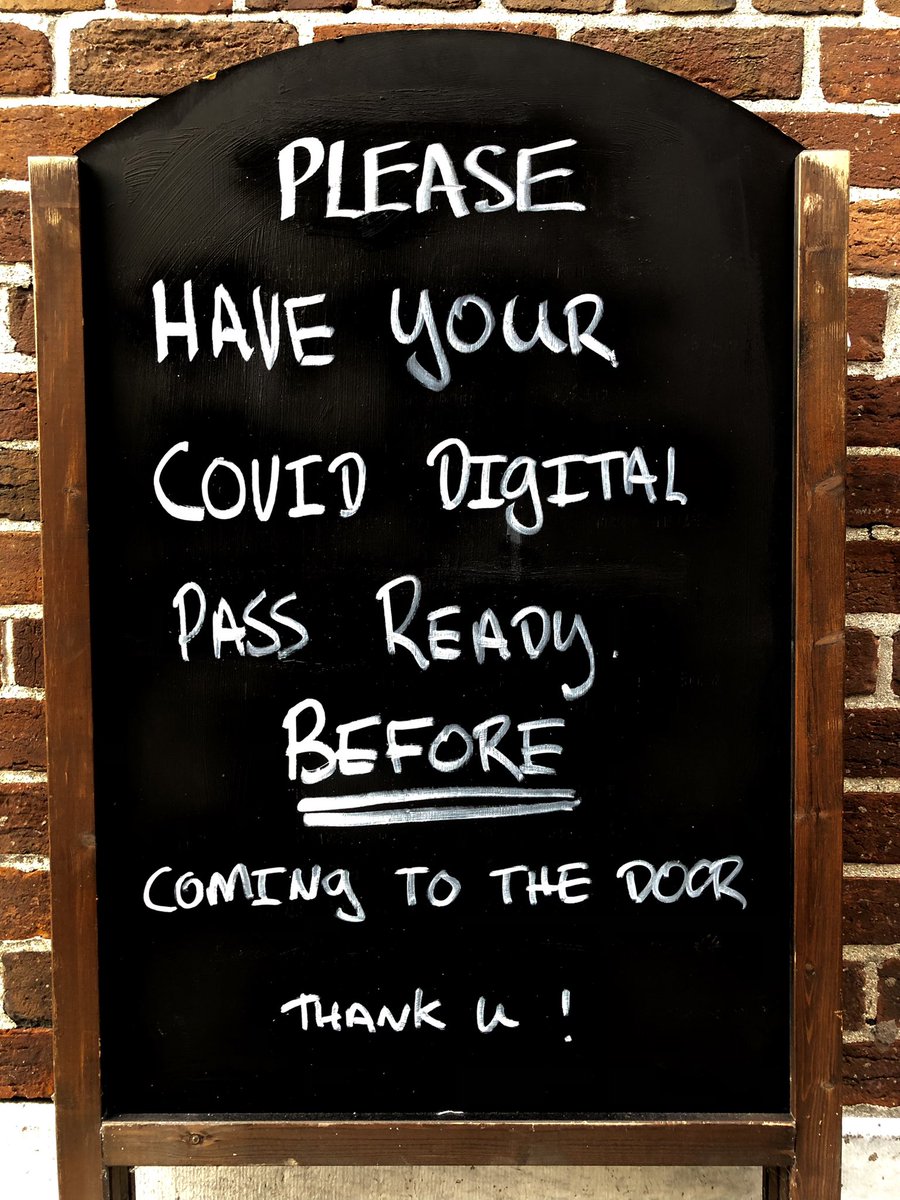 PLEASE
HAVE YOUR
COVID DIGITAL
PASS READY.
BEFORE
COMING TO THE DOOR
THANK U !